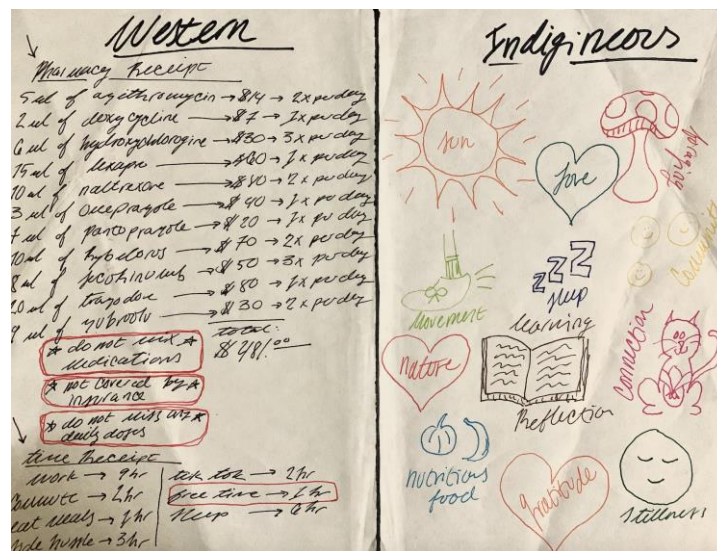 Western
Pharmacy Receipt
5 ml of azithromycin → $14 → 2x per day
2 ml of doxycycline → $7 → 1x per day
6 ml of hydroxychloroqine → $30 → 3x per day
15 ml of lexapro → $60 → 1x per day
10 ml of naltrexone → $80 → 2x per day
3 ml of omeprazole → $40 → 1x per day
7 ml of pantoprazole → $20 → 1x per day
10 ml of → $70 → 2x per day
8 ml of → $50 → 3x per day
of → $80 → 1x per day
9 ml of → $30 → 2x per day
total:
* do not mix *
medications
* not covered by *
insurance
* do not miss any *
daily doses
time Receipt
work → 9hr
→ 2hr
meals → 1hr
→ 3hr
tik tok → 2hr
free time → 1hr
sleep → 6hr
Indigineous
sun
love
playing
community
movement
zzz
sleep
learning
nature
connection
Reflection
nutritious
food
gratitude
stillness